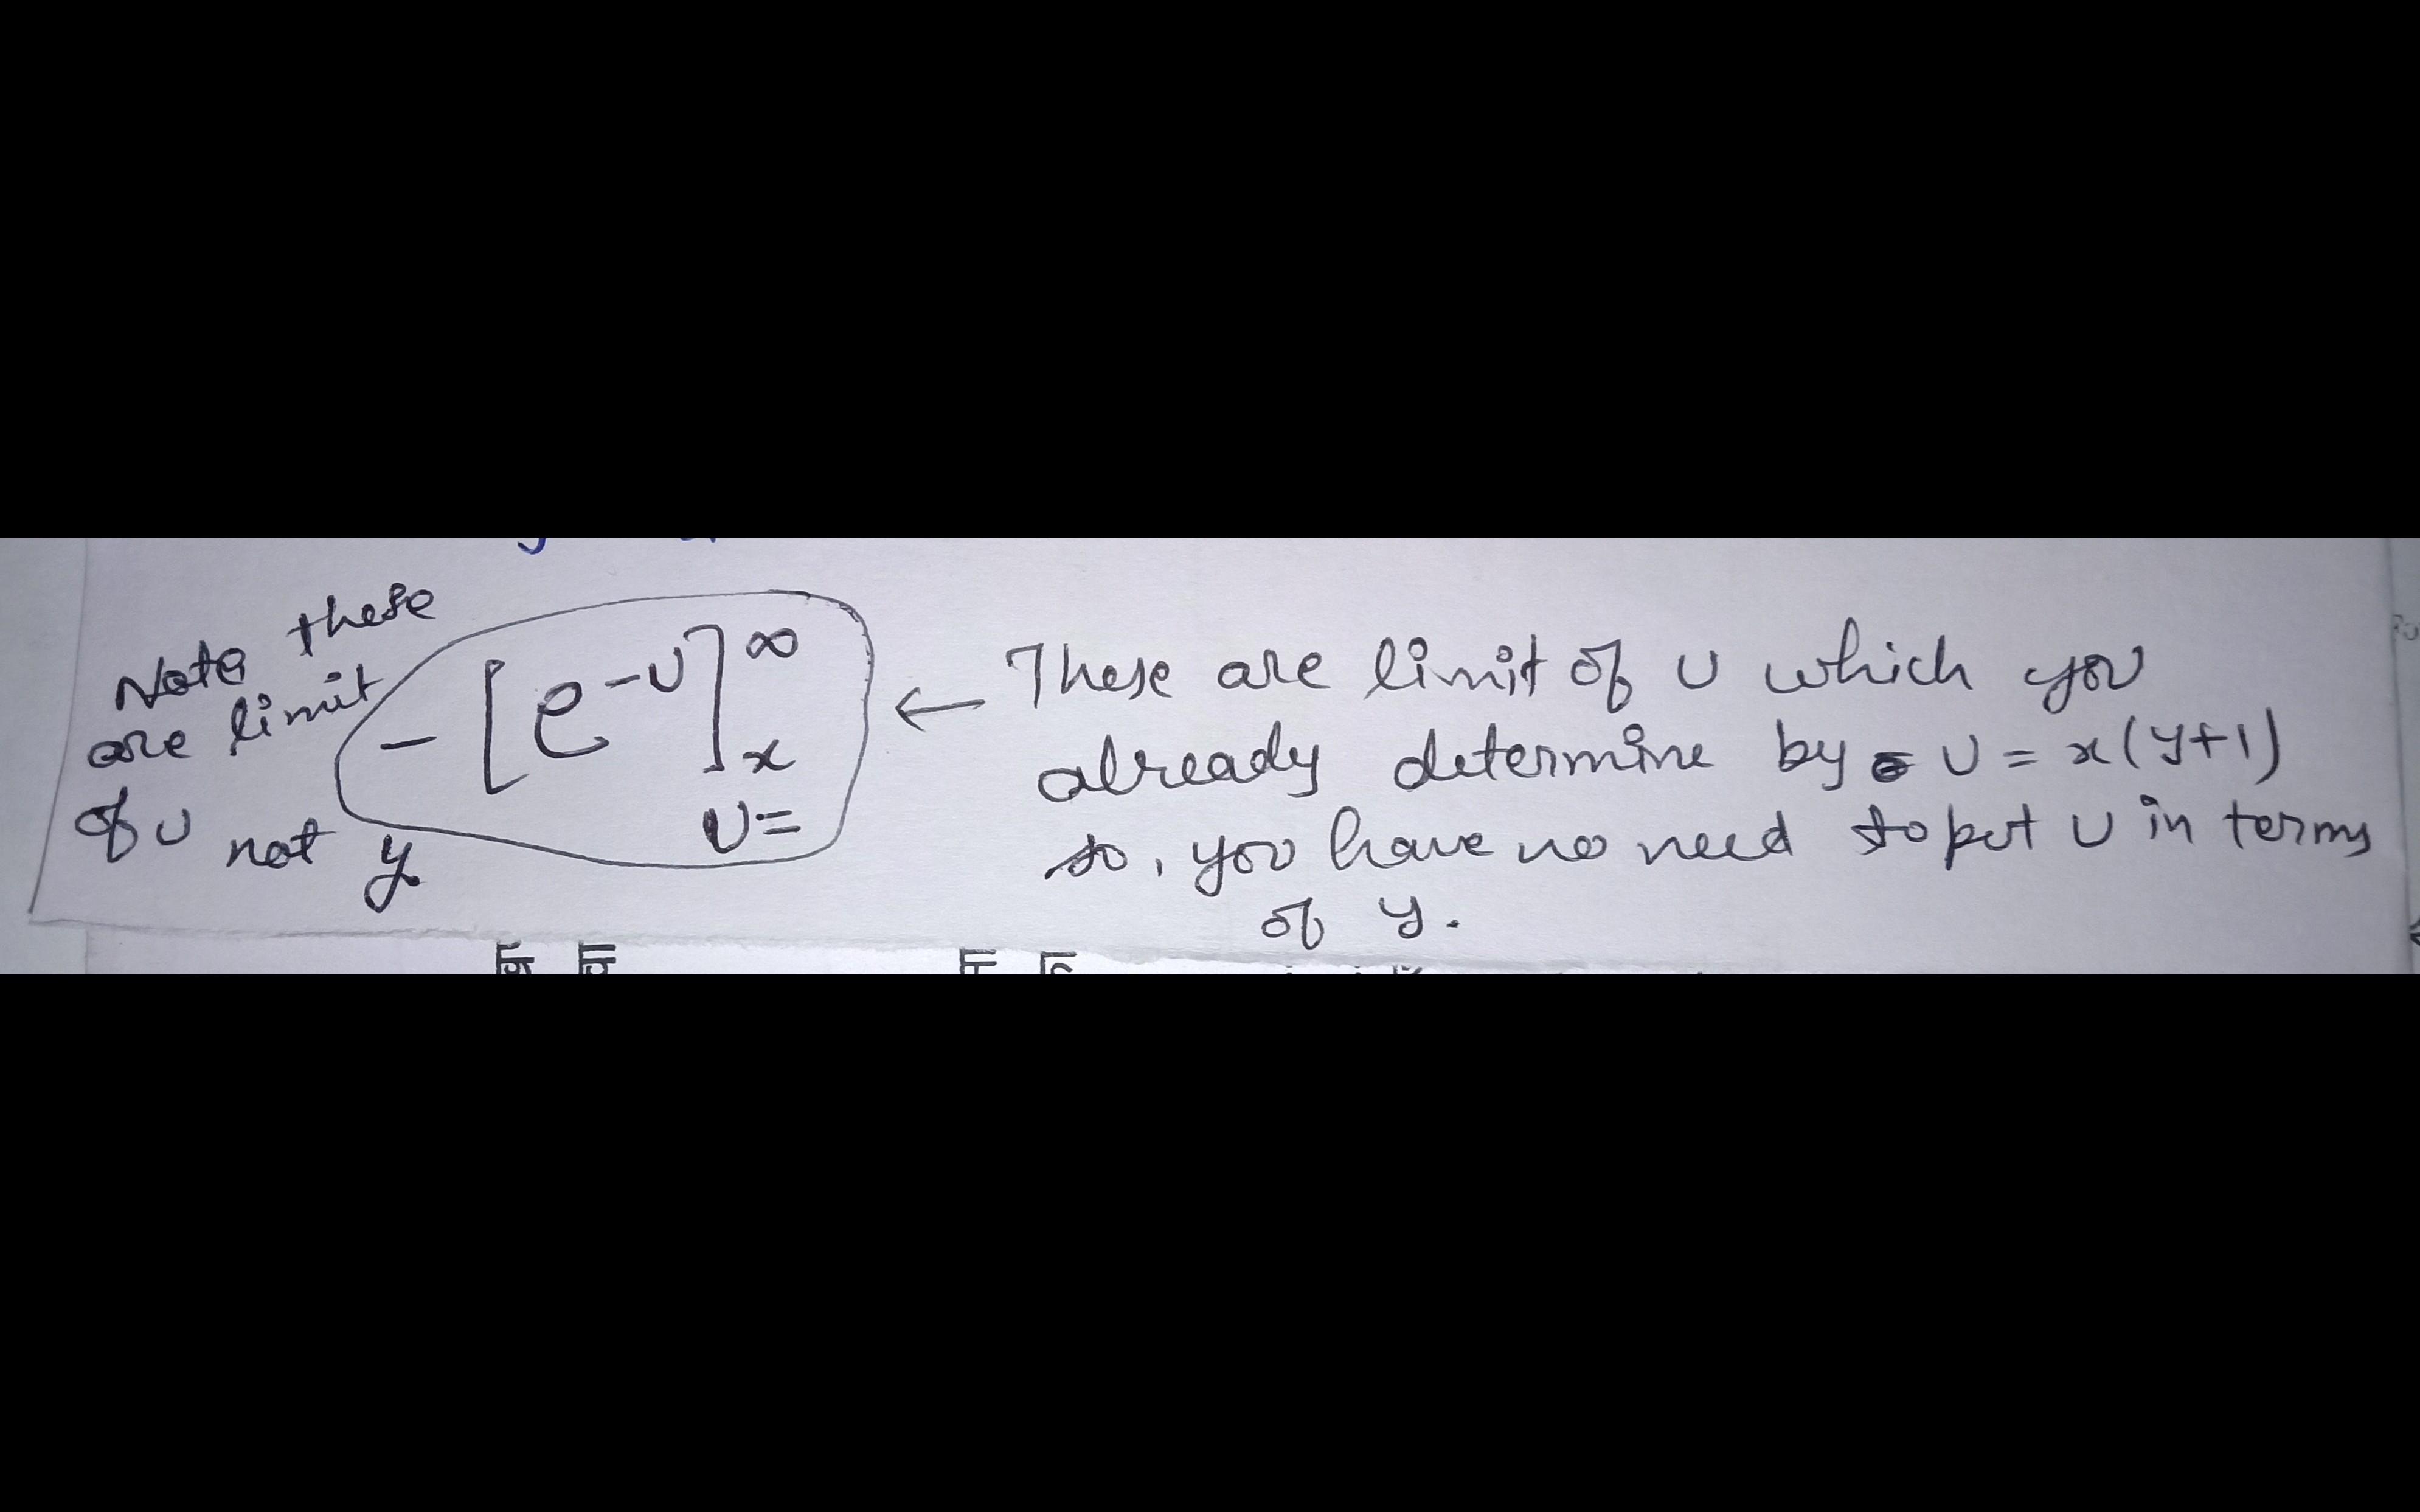 Note these
are limit
of u not y
- [e^-u]^∞_x
u=
← These are limit of u which you
already determine by u = x(y+1)
so, you have no need to put u in terms
of y.